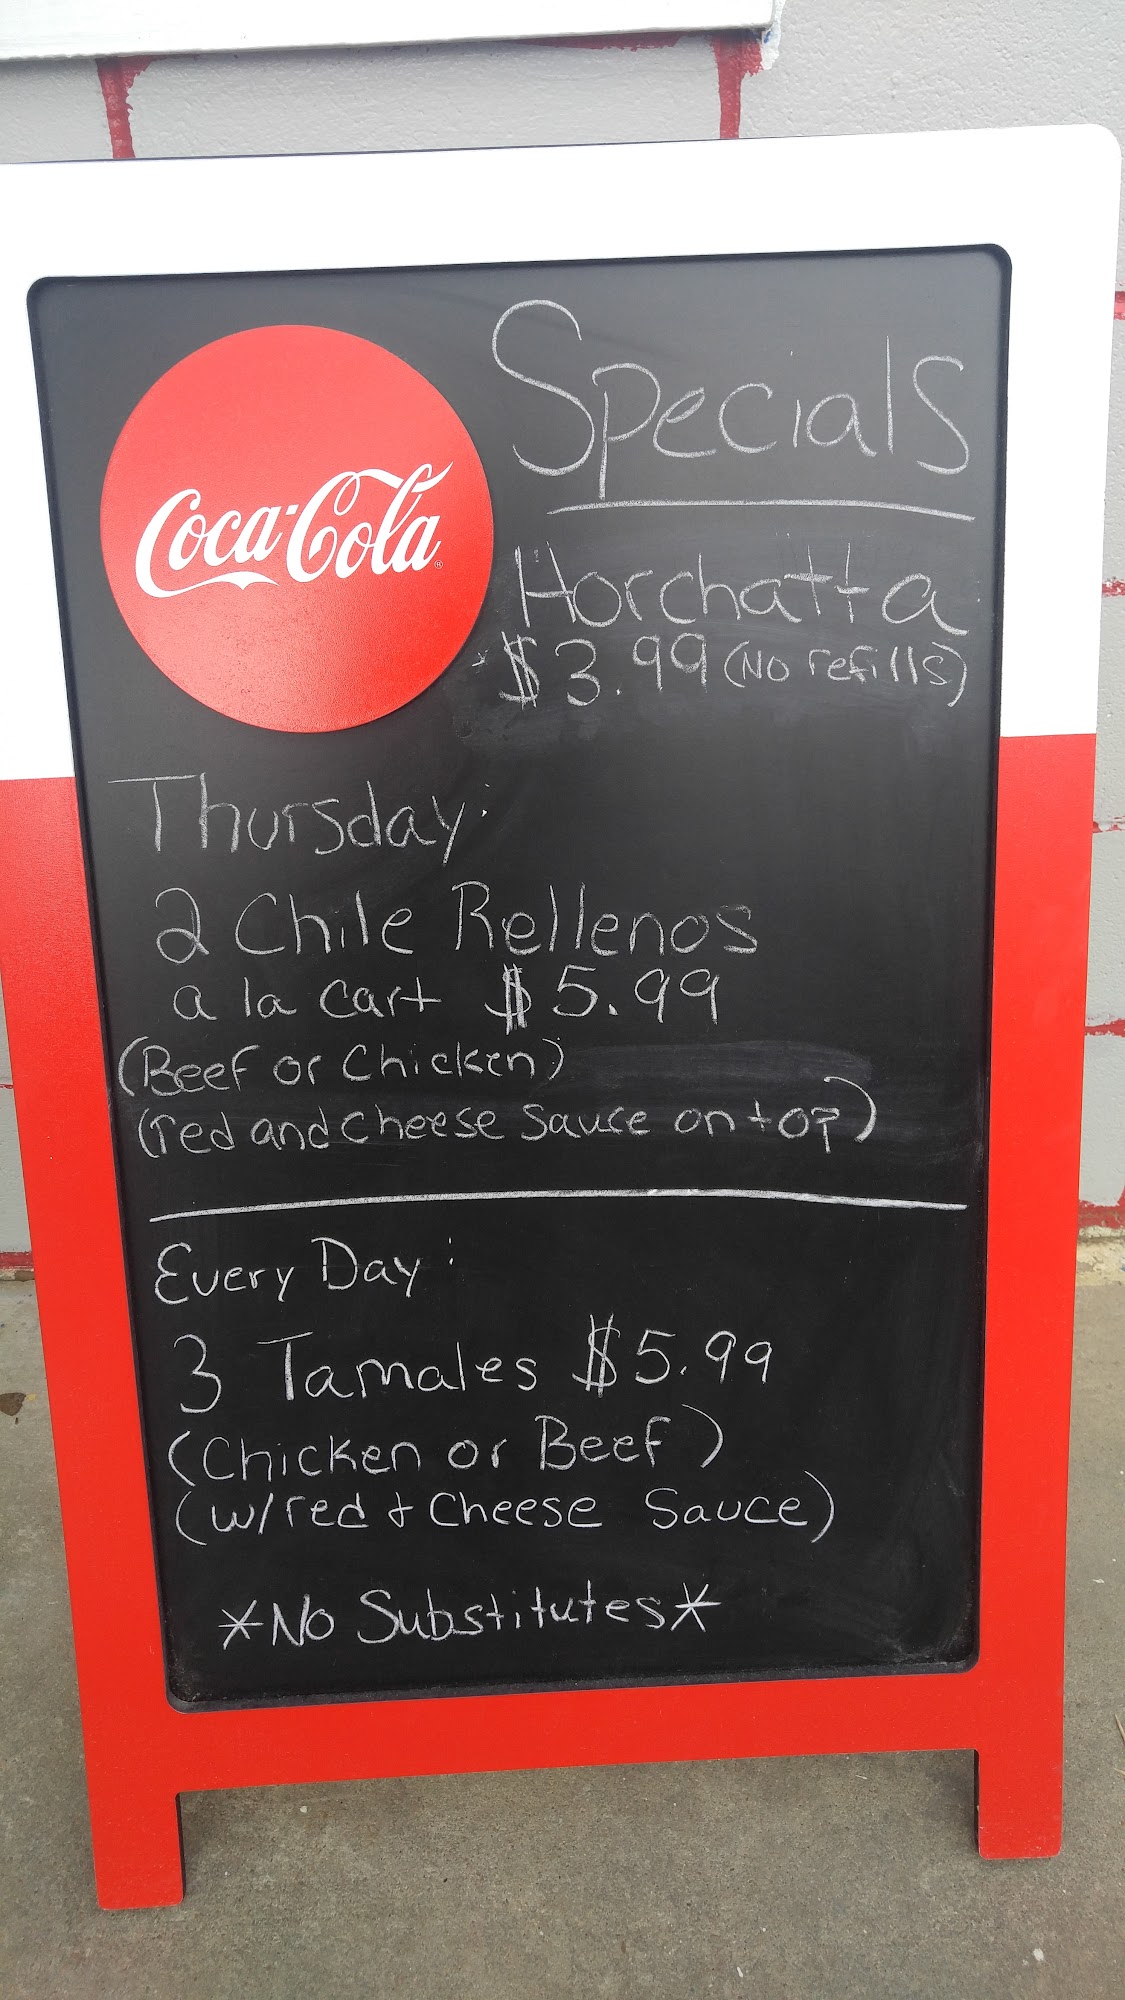 Coca-Cola
Specials
Horchatta
$3.99 (No refills)
Thursday:
2 Chile Rellenos
a la cart $5.99
(Beef or Chicken)
(red and cheese sauce on top)
Every Day:
3 Tamales $5.99
(Chicken or Beef)
(w/red + Cheese Sauce)
*No Substitutes*